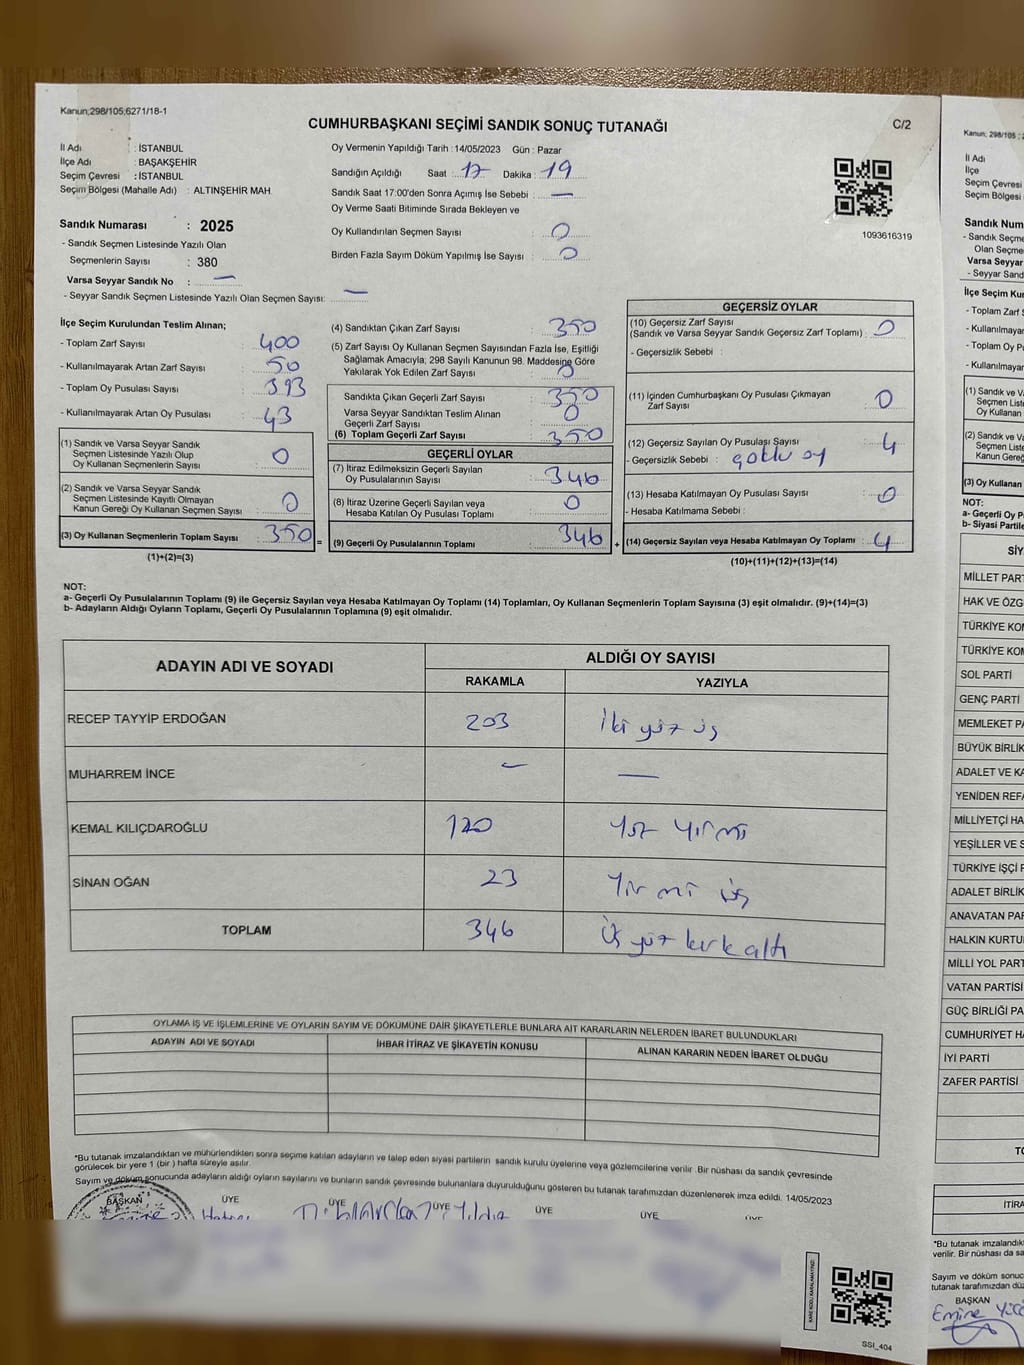 Kanun;298/105;6271/18-1
CUMHURBAŞKANI SEÇİMİ SANDIK SONUÇ TUTANAĞI
C/2
İl Adı : İSTANBUL
İlçe Adı : BAŞAKŞEHİR
Seçim Çevresi : İSTANBUL
Seçim Bölgesi (Mahalle Adı) : ALTINŞEHİR MAH.
Oy Vermenin Yapıldığı Tarih : 14/05/2023 Gün : Pazar
Sandığın Açıldığı Saat : 17 Dakika : 19
Sandık Saat 17:00'den Sonra Açımış İse Sebebi : —
Oy Verme Saati Bitiminde Sırada Bekleyen ve
Oy Kullandırılan Seçmen Sayısı : 0
Birden Fazla Sayım Döküm Yapılmış İse Sayısı : 0
1093616319
Sandık Numarası : 2025
- Sandık Seçmen Listesinde Yazılı Olan
Seçmenlerin Sayısı : 380
Varsa Seyyar Sandık No : —
- Seyyar Sandık Seçmen Listesinde Yazılı Olan Seçmen Sayısı: —
İlçe Seçim Kurulundan Teslim Alınan;
- Toplam Zarf Sayısı : 400
- Kullanılmayarak Artan Zarf Sayısı : 50
- Toplam Oy Pusulası Sayısı : 393
- Kullanılmayarak Artan Oy Pusulası : 43
(1) Sandık ve Varsa Seyyar Sandık
Seçmen Listesinde Yazılı Olup
Oy Kullanan Seçmenlerin Sayısı : 0
(2) Sandık ve Varsa Seyyar Sandık
Seçmen Listesinde Kayıtlı Olmayan
Kanun Gereği Oy Kullanan Seçmen Sayısı : 0
(3) Oy Kullanan Seçmenlerin Toplam Sayısı : 350
(1)+(2)=(3)
=
(4) Sandıktan Çıkan Zarf Sayısı : 350
(5) Zarf Sayısı Oy Kullanan Seçmen Sayısından Fazla İse, Eşitliği
Sağlamak Amacıyla; 298 Sayılı Kanunun 98. Maddesine Göre
Yakılarak Yok Edilen Zarf Sayısı : 0
Sandıkta Çıkan Geçerli Zarf Sayısı : 350
Varsa Seyyar Sandıktan Teslim Alınan
Geçerli Zarf Sayısı : 0
(6) Toplam Geçerli Zarf Sayısı : 350
GEÇERLİ OYLAR
(7) İtiraz Edilmeksizin Geçerli Sayılan
Oy Pusulalarının Sayısı : 346
(8) İtiraz Üzerine Geçerli Sayılan veya
Hesaba Katılan Oy Pusulası Toplamı : 0
(9) Geçerli Oy Pusulalarının Toplamı : 346
+
GEÇERSİZ OYLAR
(10) Geçersiz Zarf Sayısı
(Sandık ve Varsa Seyyar Sandık Geçersiz Zarf Toplamı) : 0
- Geçersizlik Sebebi :
(11) İçinden Cumhurbaşkanı Oy Pusulası Çıkmayan
Zarf Sayısı : 0
(12) Geçersiz Sayılan Oy Pusulası Sayısı : 4
- Geçersizlik Sebebi : çoklu oy
(13) Hesaba Katılmayan Oy Pusulası Sayısı : 0
- Hesaba Katılmama Sebebi :
(14) Geçersiz Sayılan veya Hesaba Katılmayan Oy Toplamı : 4
(10)+(11)+(12)+(13)=(14)
NOT:
a- Geçerli Oy Pusulalarının Toplamı (9) ile Geçersiz Sayılan veya Hesaba Katılmayan Oy Toplamı (14) Toplamları, Oy Kullanan Seçmenlerin Toplam Sayısına (3) eşit olmalıdır. (9)+(14)=(3)
b- Adayların Aldığı Oyların Toplamı, Geçerli Oy Pusulalarının Toplamına (9) eşit olmalıdır.
ADAYIN ADI VE SOYADI
ALDIĞI OY SAYISI
RAKAMLA YAZIYLA
RECEP TAYYİP ERDOĞAN 203 İki yüz üç
MUHARREM İNCE — —
KEMAL KILIÇDAROĞLU 120 Yüz Yirmi
SİNAN OĞAN 23 Yirmi üç
TOPLAM 346 Üç yüz kırk altı
OYLAMA İŞ VE İŞLEMLERİNE VE OYLARIN SAYIM VE DÖKÜMÜNE DAİR ŞİKAYETLERLE BUNLARA AİT KARARLARIN NELERDEN İBARET BULUNDUKLARI
ADAYIN ADI VE SOYADI İHBAR İTİRAZ VE ŞİKAYETİN KONUSU ALINAN KARARIN NEDEN İBARET OLDUĞU
*Bu tutanak imzalandıktan ve mühürlendikten sonra seçime katılan adayların ve talep eden siyasi partilerin sandık kurulu üyelerine veya gözlemcilerine verilir .Bir nüshası da sandık çevresinde
görülecek bir yere 1 (bir ) hafta süreyle asılır.
Sayım ve döküm sonucunda adayların aldığı oyların sayılarını ve bunların sandık çevresinde bulunanlara duyurulduğunu gösteren bu tutanak tarafımızdan düzenlenerek imza edildi. 14/05/2023
BAŞKAN ÜYE ÜYE ÜYE ÜYE ÜYE ÜYE
SSI_404
Kanun; 298/105
İl Adı
İlçe
Seçim Çevresi
Seçim Bölgesi
Sandık Num
- Sandık Seçme
Olan Seçme
Varsa Seyyar
- Seyyar Sandık
İlçe Seçim Kur
- Toplam Zarf S
- Kullanılmayara
- Toplam Oy Pu
- Kullanılmayara
(1) Sandık ve Va
Seçmen Liste
Oy Kullanan
(2) Sandık ve Va
Seçmen Liste
Kanun Gereğ
(3) Oy Kullanan
NOT:
a- Geçerli Oy P
b- Siyasi Partile
SİY
MİLLET PART
HAK VE ÖZG
TÜRKİYE KOM
TÜRKİYE KOM
SOL PARTİ
GENÇ PARTİ
MEMLEKET PA
BÜYÜK BİRLİK
ADALET VE KA
YENİDEN REFA
MİLLİYETÇİ HA
YEŞİLLER VE S
TÜRKİYE İŞÇİ P
ADALET BİRLİK
ANAVATAN PAR
HALKIN KURTU
MİLLİ YOL PART
VATAN PARTİSİ
GÜÇ BİRLİĞİ PA
CUMHURİYET HA
İYİ PARTİ
ZAFER PARTİSİ
TO
İTİRA
*Bu tutanak imzalandıkt
verilir. Bir nüshası da sa
Sayım ve döküm sonuc
tutanak tarafımızdan düz
BAŞKAN
Emine